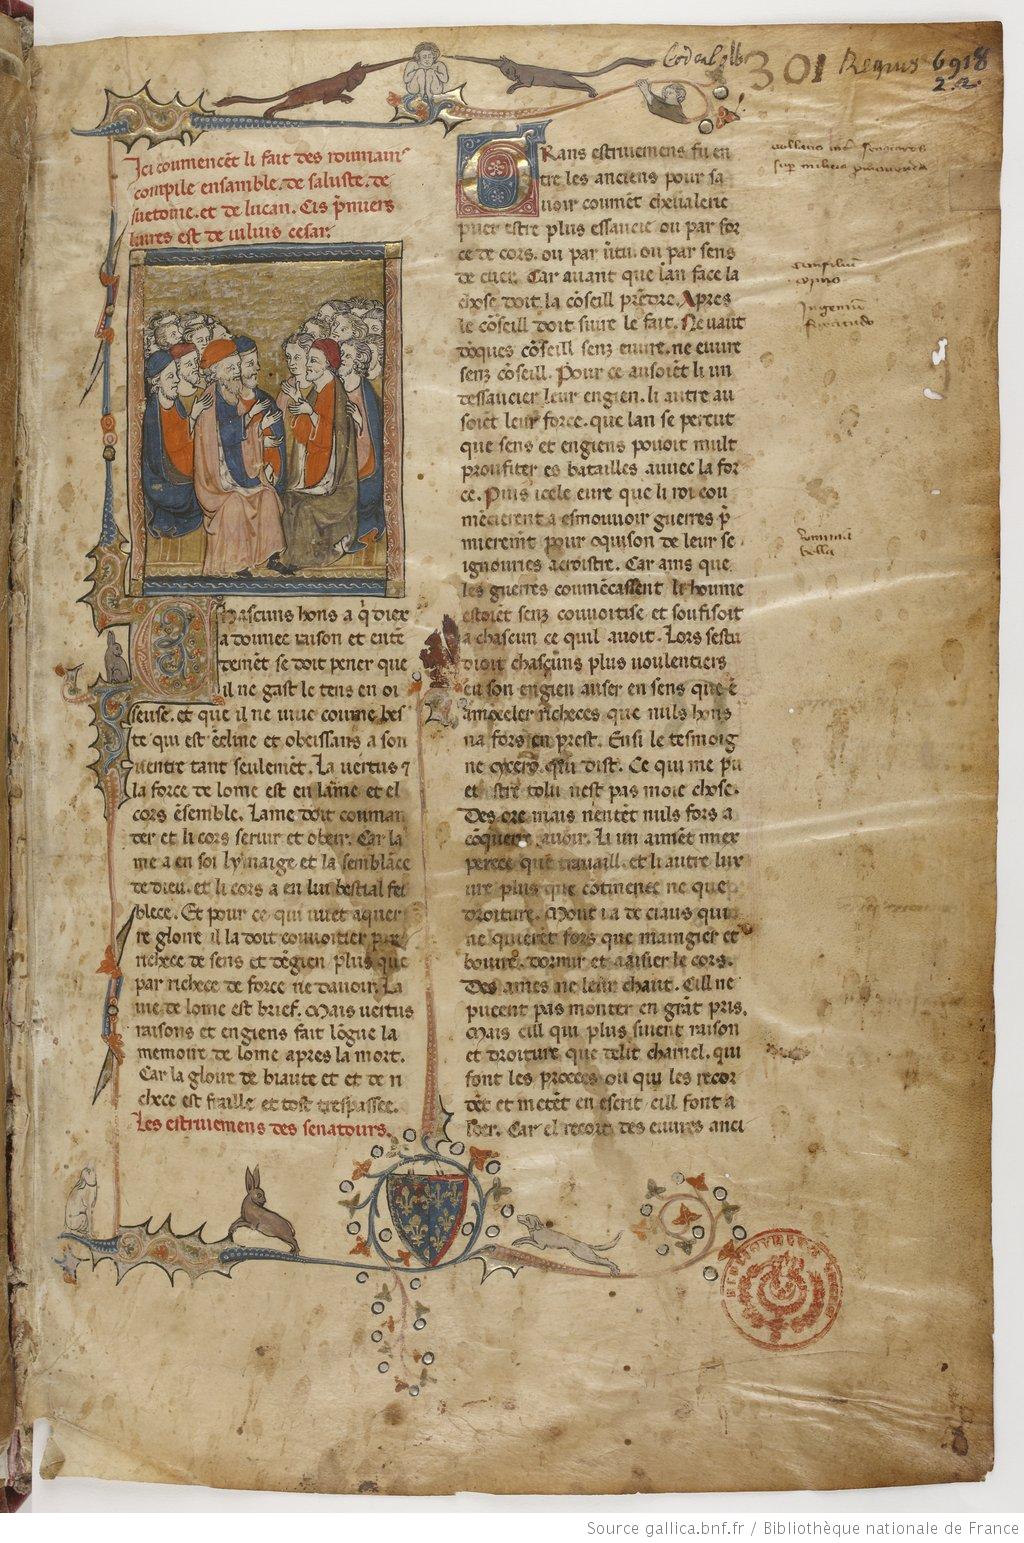 Cod. Colb.
301
Regius 6918
2.2.
Ici coumencēt li fait des roumains
compile ensamble. de saluste. de
suetoine. et de lucan. Cis p̄miers
liures est de iulius cesar.
Chascuns hons a q̇ diex
a donnee raison et entē
demēt se doit pener que
il ne gast le tens en oi
seuse. et que il ne uiue coume bes
te qui est ēcline et obeissans a son
uentre tant seulemēt. La uertus ⁊
la force de lome est en lame et el
cors ēsemble. Lame doit couman
der et li cors seruir et obeir. Car la
me a en soi lymaige et la semblāce
de dieu. et li cors a en lui bestial fei
blece. Et pour ce qui uuet aquer
re gloire il la doit conuoitier par
richece de sens et dēgien plus que
par richece de force ne dauoir. La
uie de lome est brief. Mais uertus
raisons et engiens fait lōgue la
memoire de lome apres la mort.
Car la gloire de biaute et et de ri
chece est fraille et tost trespassee.
Les estruiemens des senatours.
Grans estriuemens fu en
tre les anciens pour sa
uoir coumēt cheualerie
puet estre plus essaucie ou par for
ce de cors. ou par u̇tu. ou par sens
de cuer. Car auant que lan face la
chose doit la cōseill prēdre. Apres
le cōseill doit siure le fait. Ne uaut
doques cōseill senz euure. ne euure
senz cōseill. Pour ce ausoiēt li un
dessaucier leur engien. li autre au
soiēt leur force. que lan se percut
que sens et engiens pouoit mult
proufiter es batailles auuec la for
ce. Puis icele eure que li roi cou
mēcierent a esmouuoir guerres p̄
mieremēt pour oquison de leur se
ignouries acroistre. Car ains que
les guerres coumēcassent li houme
estoiēt senz conuoitise et soufisoit
a chascun ce quil auoit. Lors sestu
dioit chascuns plus uoulentiers
en son engieu auser en sens que ē
amōceler richeces que nuls hons
na fors en prest. Ensi le tesmoig
ne cycerō qui dist. Ce qui me pu
et estre tolu nest pas moie chose.
Des ore mais nentēt nuls fors a
cōquerre auoir. Li un aimēt miex
perece que trauaill. et li autre lux
ure plus que cōtinence ne que
droiture. Mout i a de ciaus qui
ne quierēt fors que maingier et
boiure. dormir et aaisier le cors.
Des ames ne leur chaut. Cill ne
pueent pas monter en grāt pris.
Mais cill qui plus siuent raison
et droiture que delit charnel. qui
font les proeces ou qui les recor
dēt et metēt en escrit cill font a
loer. Car el recoit des euures anci
consilium
ingenium
bella
Source gallica.bnf.fr / Bibliothèque nationale de France